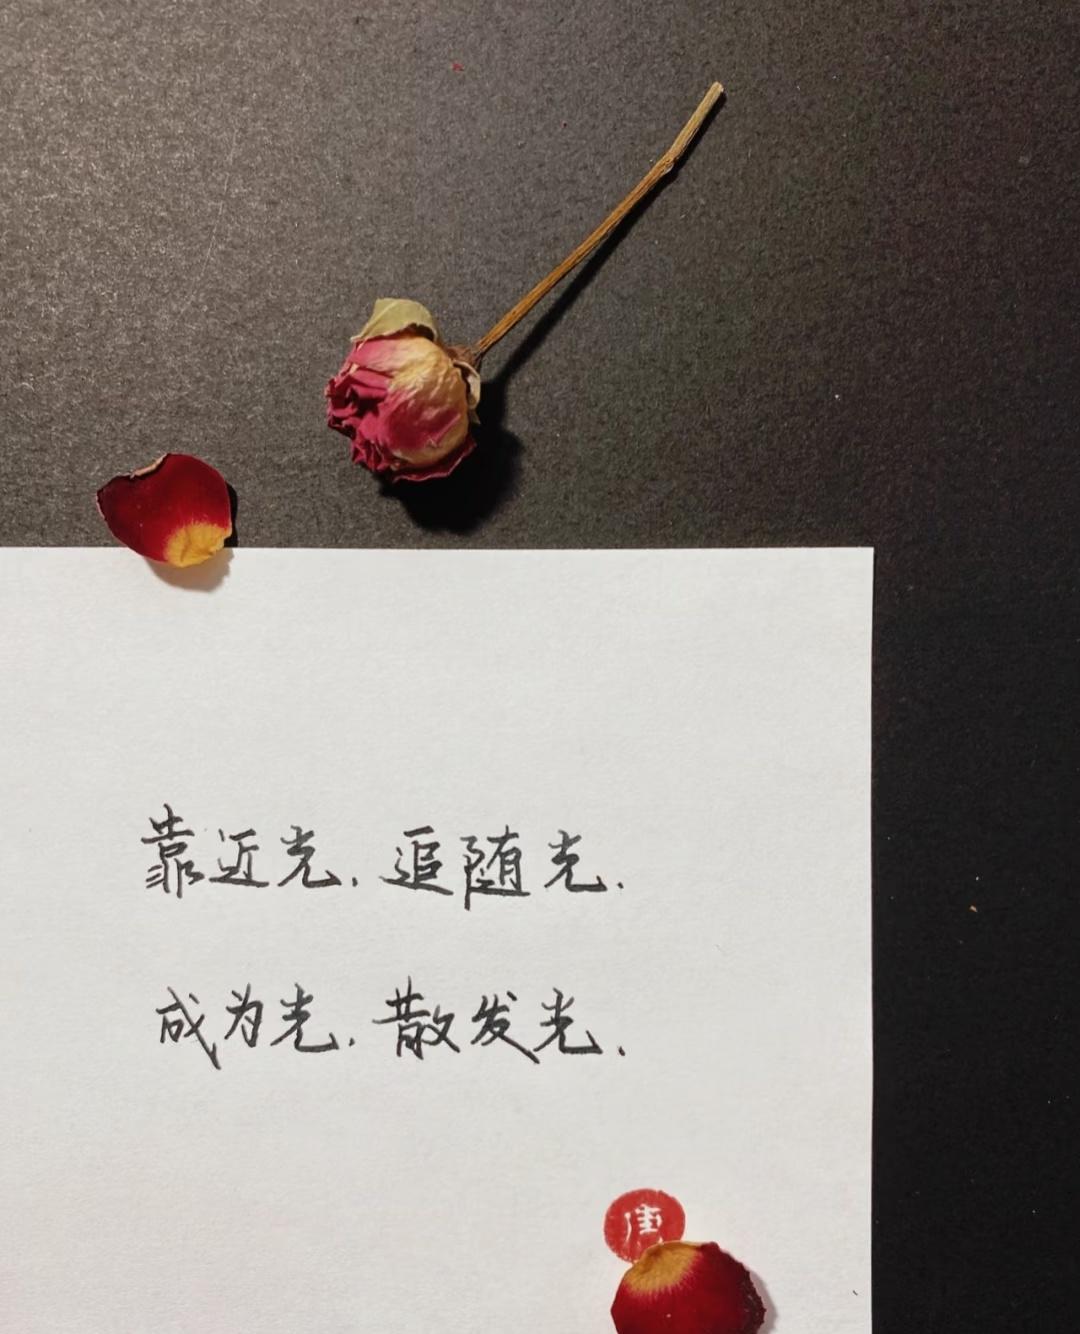 靠近光.追随光.
成为光.散发光.